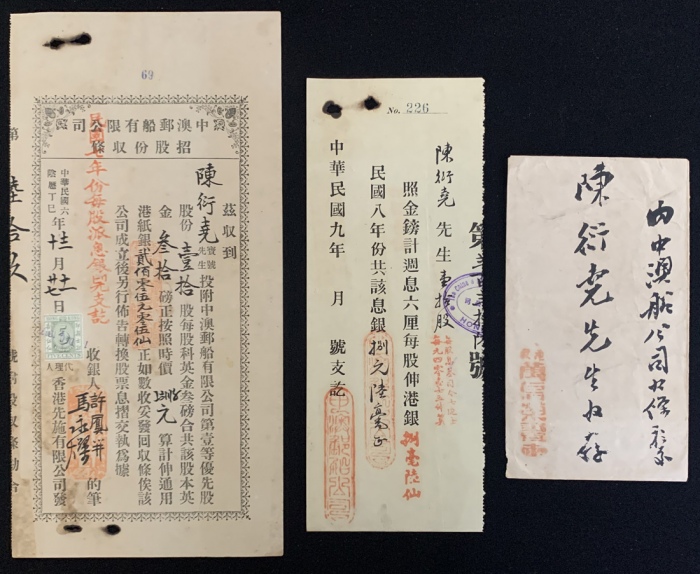 69
中澳郵船有限公司
招股份收條
茲收到
陳衍堯寶號先生投附中澳郵船有限公司第壹等優先股
股份壹拾股每股科英金叁磅合共該股本英
金叁拾磅正按照時價元算計伸通用
港紙銀貳佰零伍元零伍仙正如數收妥發囘收條俟該
公司成立後另行佈告轉換股票息摺交執為據
收銀人許鳳馬永燦的筆
代理人香港先施有限公司發
中華民國六
陰曆丁巳年月廿七日
民國七年份每股派息支訖
第陸拾玖
No. 226
第拾陸號
陳衍堯先生壹拾股
照金鎊計週息六厘每股伸港銀捌毫陸仙
民國八年份共該息銀捌元陸毫正
中華民國九年 月 號支訖
內中澳船公司收條
陳衍堯先生收存